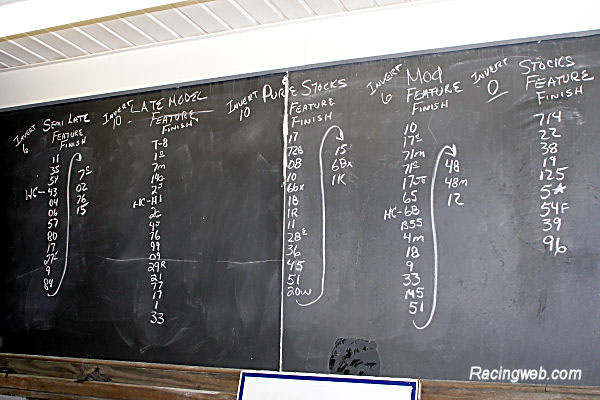 INVERT
6
SEMI LATE
FEATURE
FINISH
11
35
51
WC-43
04
06
57
80
17
9
84
02
76
15
INVERT
10
LATE MODEL
FEATURE
FINISH
T-8
76
99
09
29R
21
77
17
1
33
INVERT
10
PURE STOCKS
FEATURE
FINISH
17
72B
08
10
66x
18
1R
11
36
45
51
20W
15
68x
1K
INVERT
6
MOD
FEATURE
FINISH
10
71m
65
HC-68
B55
4m
18
9
33
M5
51
48
48m
12
INVERT
0
STOCKS
FEATURE
FINISH
714
22
38
19
125
54F
39
96
Racingweb.com